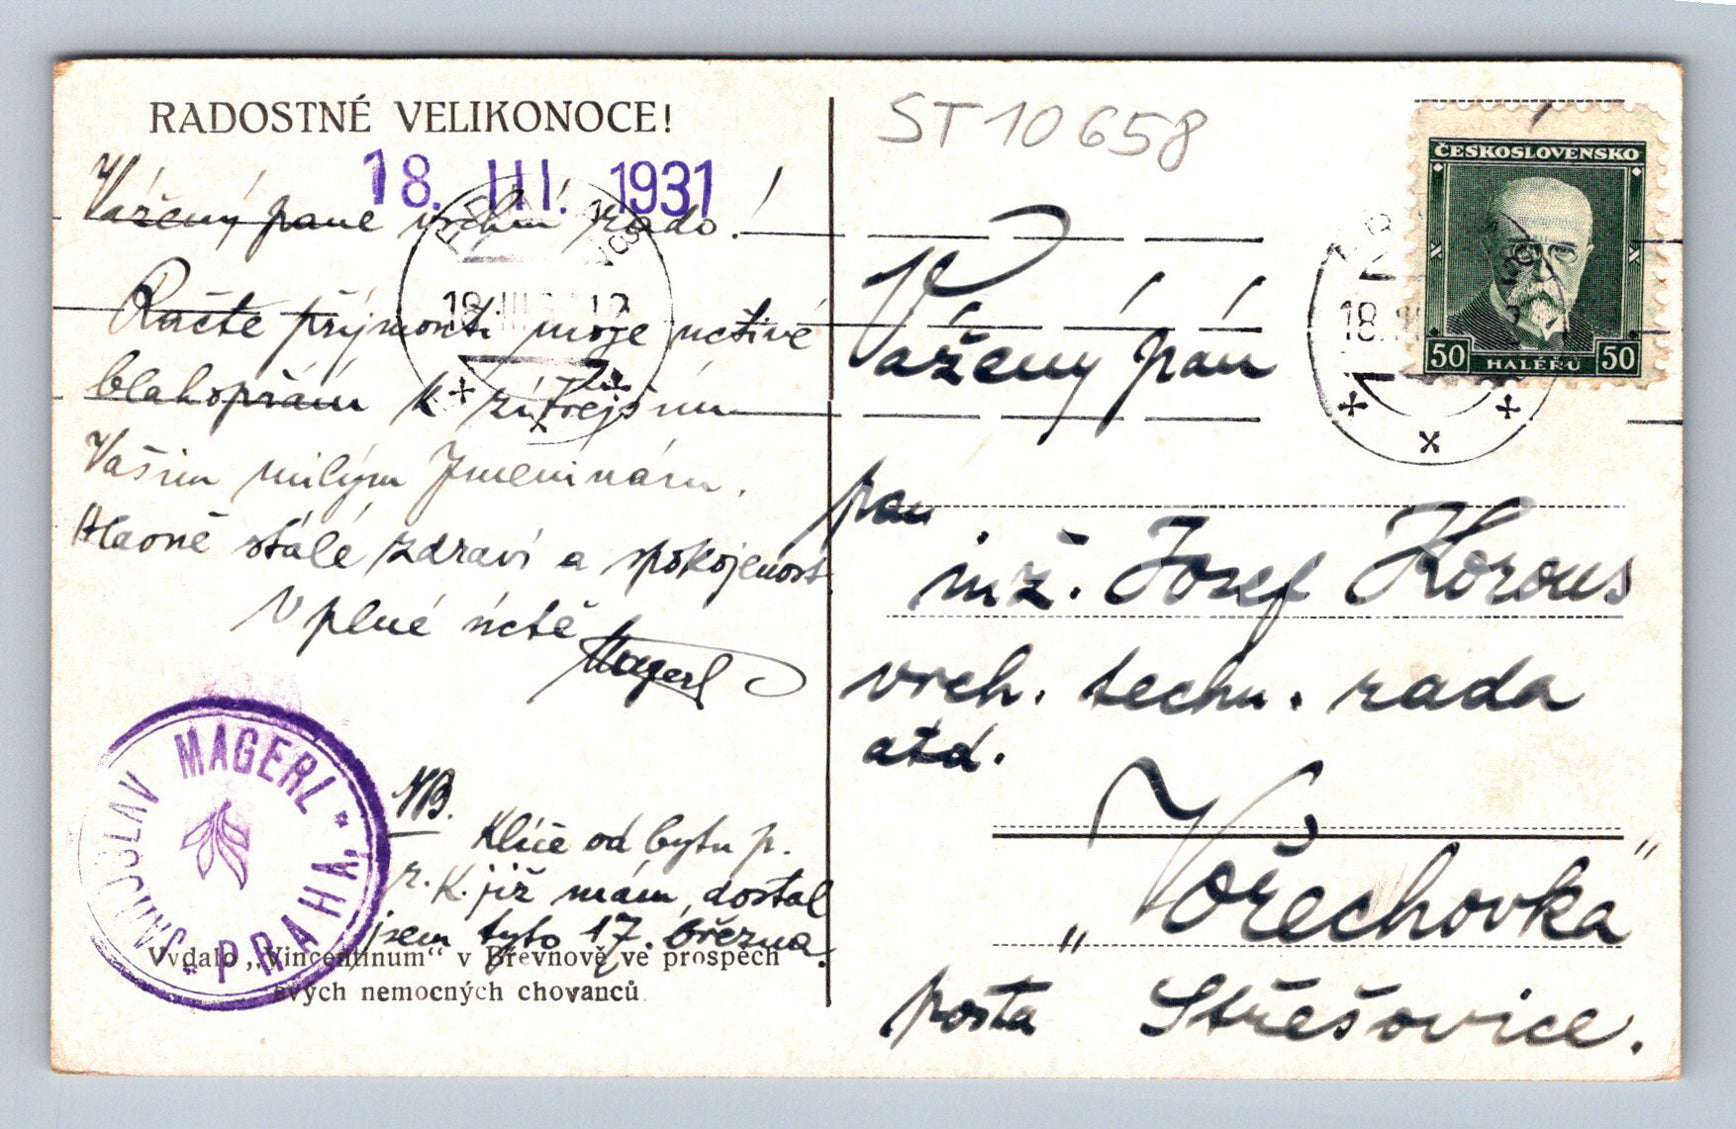 RADOSTNÉ VELIKONOCE!
18. III. 1931
Vážený pane vrchní rado!
Račte přijmouti moje uctivé
blahopřání k zítřejším
Vašim milým Jmeninám.
Hlavně stálé zdraví a spokojenost
V plné úctě
Magerl
JAROSLAV MAGERL
"PRAHA"
NB.
Klíče od bytu p.
r. K. již mám, dostal
jsem tyto 17. března.
Vydalo „Vincentinum“ v Břevnově ve prospěch
svých nemocných chovanců
ST 10658
ČESKOSLOVENSKO
50 HALÉŘŮ 50
18.III
Vážený pán
pan
inž. Josef Korous
vrch. techn. rada
atd.
„Vořechovka“
pošta Střešovice.